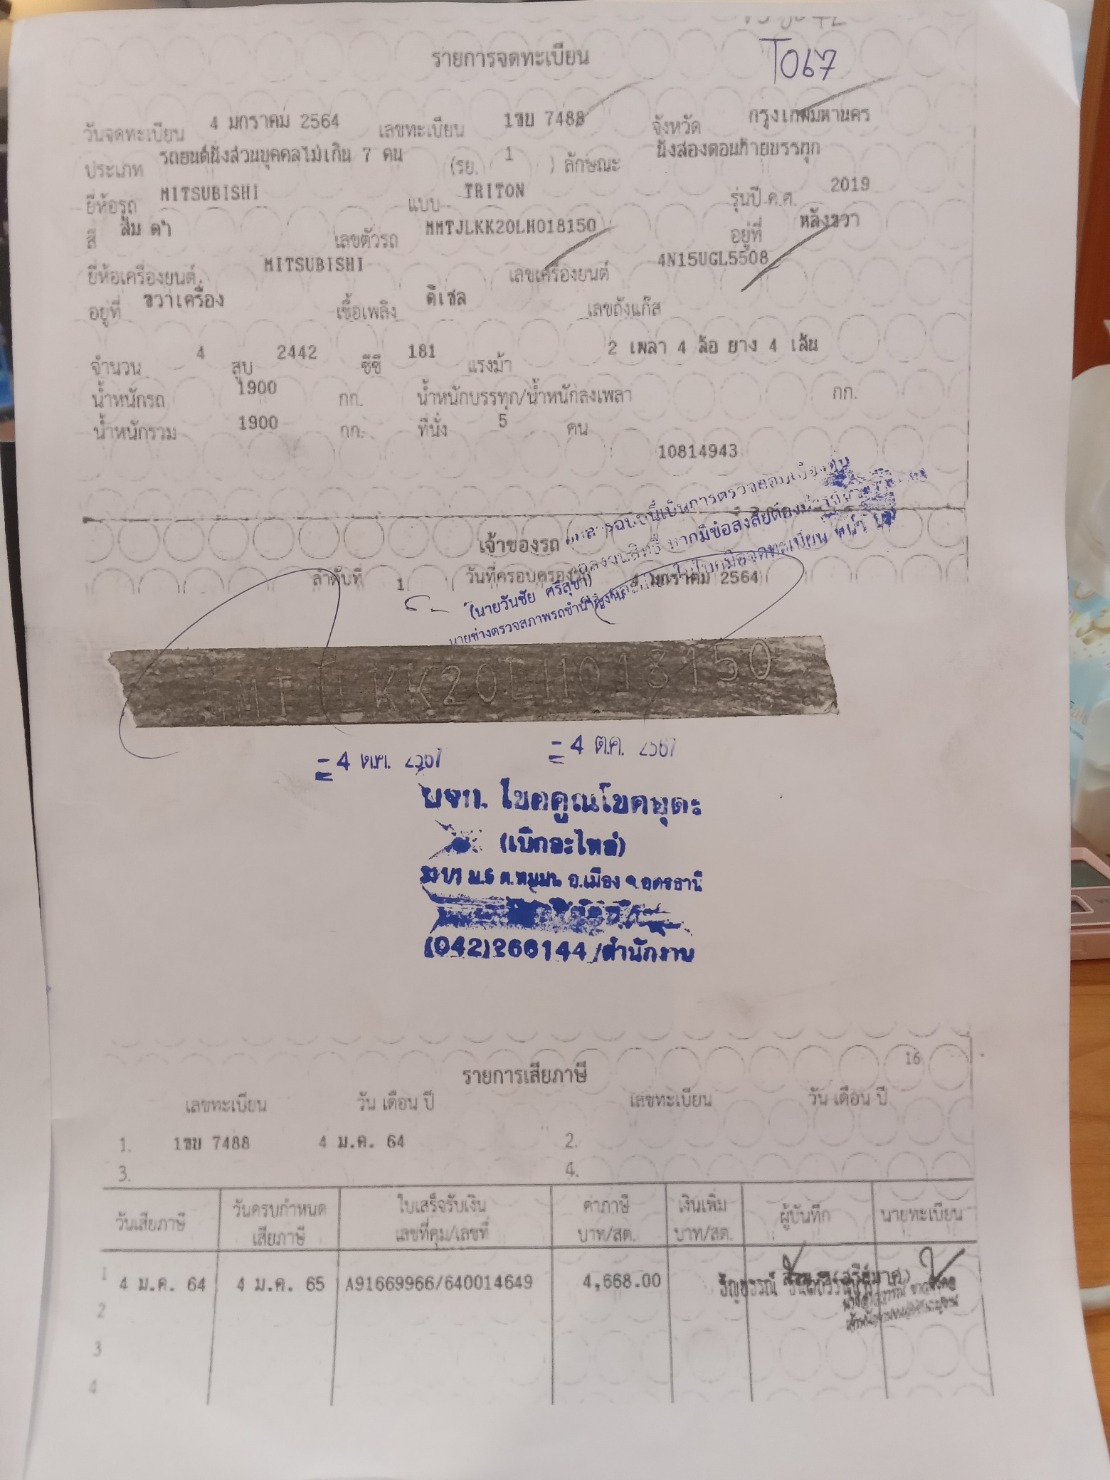 T067
รายการจดทะเบียน
วันจดทะเบียน 4 มกราคม 2564 เลขทะเบียน 1ขบ 7488 จังหวัด กรุงเทพมหานคร
ประเภท รถยนต์นั่งส่วนบุคคลไม่เกิน 7 คน (รย. 1 ) ลักษณะ นั่งสองตอนท้ายบรรทุก
ยี่ห้อรถ MITSUBISHI แบบ TRITON รุ่นปี ค.ศ. 2019
สี ส้ม ดำ เลขตัวรถ MMTJLKK20LH018150 อยู่ที่ หลังขวา
ยี่ห้อเครื่องยนต์ MITSUBISHI เลขเครื่องยนต์ 4N15UGL5508
อยู่ที่ ขวาเครื่อง เชื้อเพลิง ดีเซล เลขถังแก๊ส
จำนวน 4 สูบ 2442 ซีซี 181 แรงม้า 2 เพลา 4 ล้อ ยาง 4 เส้น
น้ำหนักรถ 1900 กก. น้ำหนักบรรทุก/น้ำหนักลงเพลา กก.
น้ำหนักรวม 1900 กก. ที่นั่ง 5 คน
10814943
เจ้าของรถ
ลำดับที่ 1 วันที่ครอบครองรถ 4 มกราคม 2564
(นายวันชัย ศรีสุชา)
นายช่างตรวจสภาพรถชำนาญงาน
KK20LH018150
- 4 ต.ค. 2567 - 4 ต.ค. 2567
หจก. โชคคูณโชคยุดะ
(เบิกอะไหล่)
ม.6 ต.หมูม่น อ.เมือง จ.อุดรธานี
(042)266144/สำนักงาน
16
รายการเสียภาษี
เลขทะเบียน วัน เดือน ปี เลขทะเบียน วัน เดือน ปี
1. 1ขบ 7488 4 ม.ค. 64 2.
3. 4.
วันเสียภาษี วันครบกำหนดเสียภาษี ใบเสร็จรับเงิน เลขที่คุม/เลขที่ ค่าภาษี บาท/สต. เงินเพิ่ม บาท/สต. ผู้บันทึก นายทะเบียน
1 4 ม.ค. 64 4 ม.ค. 65 A91669966/640014649 4,668.00
2
3
4